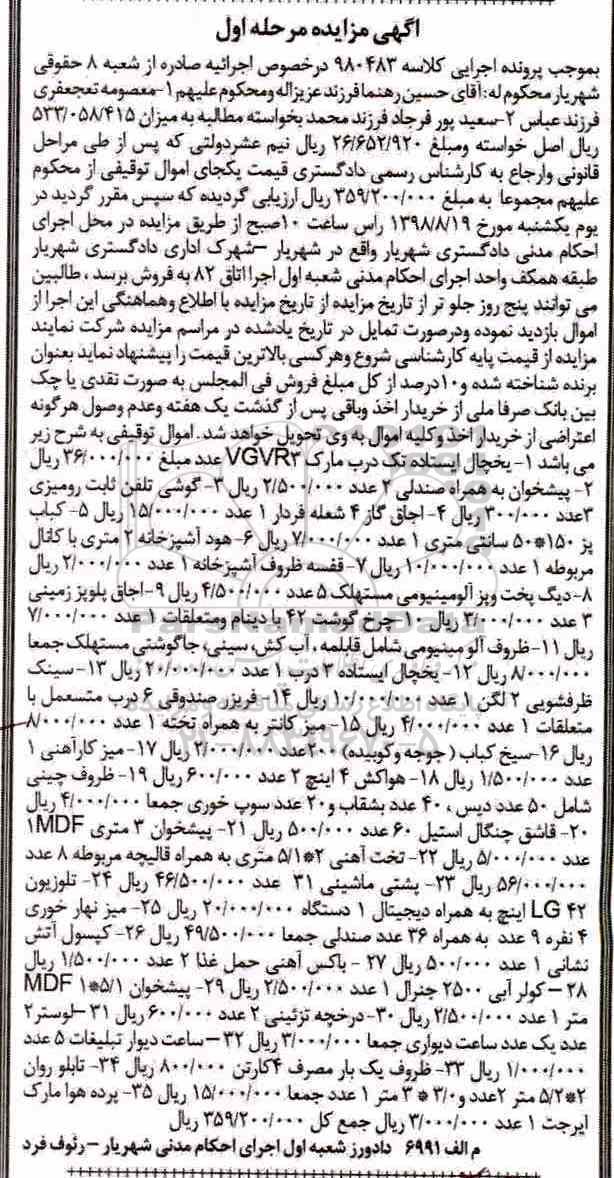 آگهی مزایده مرحله اول
بموجب پرونده اجرایی کلاسه ۹۸۰۴۸۳ درخصوص اجرائیه صادره از شعبه ۸ حقوقی
شهریار محکوم له: آقای حسین رهنما فرزند عزیزاله ومحکوم علیهم ۱-معصومه نعجعفری
فرزند عباس ۲-سعید پور فرجاد فرزند محمد بخواسته مطالبه به میزان ۵۳۳/۰۵۸/۴۱۵
ریال اصل خواسته ومبلغ ۲۶/۶۵۲/۹۲۰ ریال نیم عشردولتی که پس از طی مراحل
قانونی وارجاع به کارشناس رسمی دادگستری قیمت یکجای اموال توقیفی از محکوم
علیهم مجموعا به مبلغ ۳۵۹/۲۰۰/۰۰۰ ریال ارزیابی گردیده که سپس مقرر گردید در
یوم یکشنبه مورخ ۱۳۹۸/۸/۱۹ راس ساعت ۱۰صبح از طریق مزایده در محل اجرای
احکام مدنی دادگستری شهریار واقع در شهریار –شهرک اداری دادگستری شهریار
طبقه همکف واحد اجرای احکام مدنی شعبه اول اجرا اتاق ۸۲ به فروش برسد ، طالبین
می توانند پنج روز جلو تر از تاریخ مزایده از تاریخ مزایده با اطلاع وهماهنگی این اجرا از
اموال بازدید نموده ودرصورت تمایل در تاریخ یادشده در مراسم مزایده شرکت نمایند
مزایده از قیمت پایه کارشناسی شروع وهرکسی بالاترین قیمت را پیشنهاد نماید بعنوان
برنده شناخته شده و۱۰درصد از کل مبلغ فروش فی المجلس به صورت نقدی یا چک
بین بانک صرفا ملی از خریدار اخذ وباقی پس از گذشت یک هفته وعدم وصول هرگونه
اعتراضی از خریدار اخذ وکلیه اموال به وی تحویل خواهد شد . اموال توقیفی به شرح زیر
می باشد ۱- یخچال ایستاده تک درب مارک VGVR۳ عدد مبلغ ۳۶/۰۰۰/۰۰۰ ریال
۲- پیشخوان به همراه صندلی ۲ عدد ۲/۵۰۰/۰۰۰ ریال ۳- گوشی تلفن ثابت رومیزی
۳عدد ۳۰۰/۰۰۰ ریال ۴- اجاق گاز ۴ شعله فردار ۱ عدد ۱۵/۰۰۰/۰۰۰ ریال ۵- کباب
پز ۱۵۰*۵۰ سانتی متری ۱ عدد ۷/۰۰۰/۰۰۰ ریال ۶- هود آشپزخانه ۲ متری با کانال
مربوطه ۱ عدد ۱۰/۰۰۰/۰۰۰ ریال ۷- قفسه ظروف آشپزخانه ۱ عدد ۲/۰۰۰/۰۰۰ ریال
۸-دیگ پخت وپز آلومینیومی مستهلک ۵ عدد ۴/۵۰۰/۰۰۰ ریال ۹-اجاق پلوپز زمینی
۳ عدد ۳/۰۰۰/۰۰۰ ریال ۱۰- چرخ گوشت ۴۲ با دینام ومتعلقات ۱ عدد ۷/۰۰۰/۰۰۰
ریال ۱۱-ظروف آلومینیومی شامل قابلمه ، آب کش، سینی، جاگوشتی مستهلک جمعا
۸/۰۰۰/۰۰۰ ریال ۱۲- یخچال ایستاده ۳ درب ۱ عدد ۲۰/۰۰۰/۰۰۰ ریال ۱۳-سینک
ظرفشویی ۲ لگن ۱ عدد ۱۰/۰۰۰/۰۰۰ ریال ۱۴- فریزر صندوقی ۶ درب متسعمل با
متعلقات ۱ عدد ۴/۰۰۰/۰۰۰ ریال ۱۵- میز کانتر به همراه تخته ۱ عدد ۸/۰۰۰/۰۰۰
ریال ۱۶-سیخ کباب ( جوجه و کوبیده) ۲۰۰عدد ۲/۰۰۰/۰۰۰ ریال ۱۷- میز کارآهنی ۱
عدد ۱/۵۰۰/۰۰۰ ریال ۱۸- هواکش ۴ اینچ ۲ عدد ۶۰۰/۰۰۰ ریال ۱۹- ظروف چینی
شامل ۵۰ عدد دیس ، ۴۰ عدد بشقاب و ۲۰ عدد سوپ خوری جمعا ۴/۰۰۰/۰۰۰ ریال
۲۰- قاشق چنگال استیل ۶۰ عدد ۵۰۰/۰۰۰ ریال ۲۱- پیشخوان ۳ متری MDF۱
عدد ۵/۰۰۰/۰۰۰ ریال ۲۲- تخت آهنی ۲*۵/۱ متری به همراه قالیچه مربوطه ۸ عدد
۵۶/۰۰۰/۰۰۰ ریال ۲۳- پشتی ماشینی ۳۱ عدد ۴۶/۵۰۰/۰۰۰ ریال ۲۴- تلوزیون
LG ۴۲ اینچ به همراه دیجیتال ۱ دستگاه ۲۰/۰۰۰/۰۰۰ ریال ۲۵- میز نهار خوری
۴ نفره ۹ عدد به همراه ۳۶ عدد صندلی جمعا ۴۹/۵۰۰/۰۰۰ ریال ۲۶- کپسول آتش
نشانی ۱ عدد ۵۰۰/۰۰۰ ریال ۲۷ - باکس آهنی حمل غذا ۲ عدد ۱/۵۰۰/۰۰۰ ریال
۲۸ –کولر آبی ۲۵۰۰ جنرال ۱ عدد ۲/۵۰۰/۰۰۰ ریال ۲۹- پیشخوان ۵/۱*۱ MDF
متر ۱ عدد ۲/۵۰۰/۰۰۰ ریال ۳۰-درخچه تزئینی ۲ عدد ۶۰۰/۰۰۰ ریال ۳۱ –لوستر۲
عدد یک عدد ساعت دیواری جمعا ۳/۰۰۰/۰۰۰ ریال ۳۲–ساعت دیوار تبلیغات ۵ عدد
۱/۰۰۰/۰۰۰ ریال ۳۳- ظروف یک بار مصرف ۴کارتن ۸۰۰/۰۰۰ ریال ۳۴- تابلو روان
۲*۵/۲ متر ۲عدد و۳/۰ * ۳ متر ۱ عدد جمعا ۱۵/۰۰۰/۰۰۰ ریال ۳۵- پرده هوا مارک
ایرجت ۱ عدد ۳/۰۰۰/۰۰۰ ریال جمع کل ۳۵۹/۲۰۰/۰۰۰ ریال
م الف ۶۹۹۱ دادورز شعبه اول اجرای احکام مدنی شهریار –رئوف فرد
ParsNamadData
۰۲۱-۸۸۳۴۹۶۷۰-۵